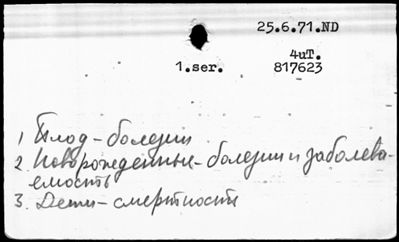 25.6.71.ND
4uT.
1.ser. 817623
1 Плод - болезни
2. Новорожденные - болезни и заболева-
емость
3. Дети - смертность